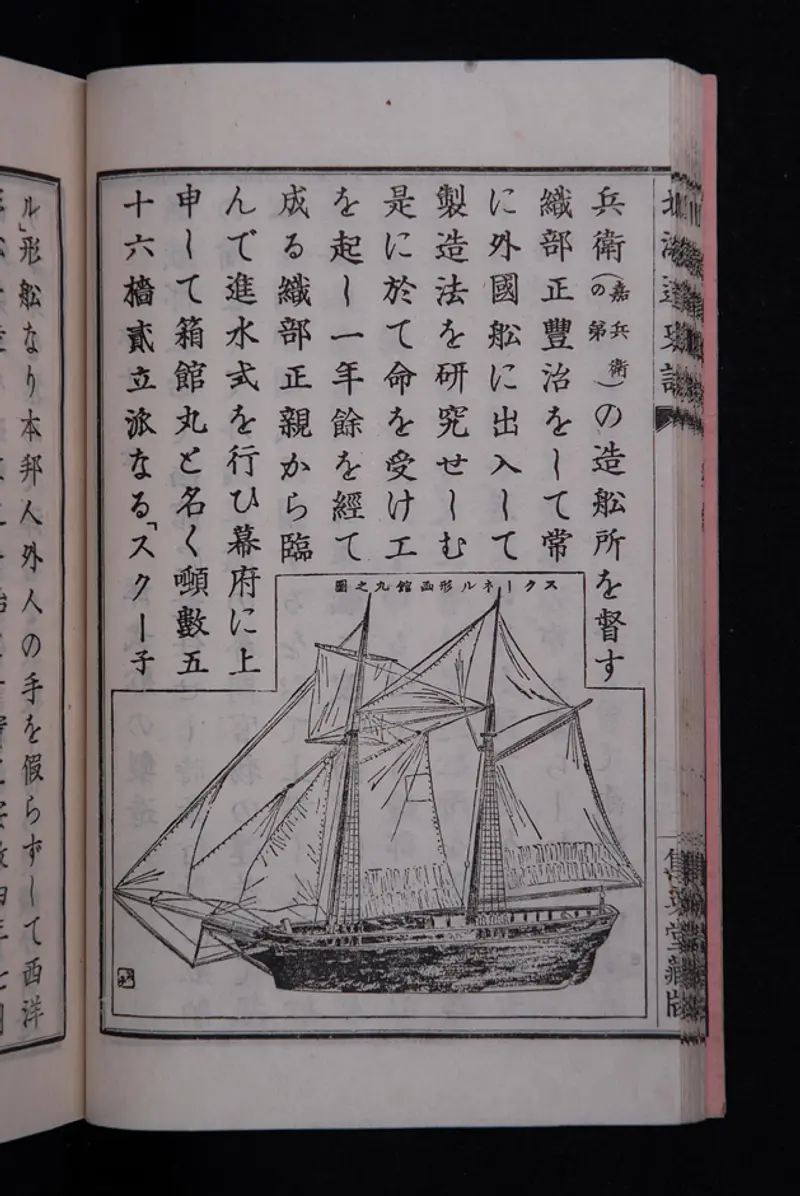 兵衛（嘉兵衛の第）の造舩所を督す
織部正豐治をして常
に外國舩に出入して
製造法を研究せしむ
是に於て命を受け工
を起し一年餘を經て
成る織部正親から臨
んで進水式を行ひ幕府に上
申して箱館丸と名く噸數五
十六檣貳立派なる「スクー子
スクーネル形凾館丸之圖
ル」形舩なり本邦人外人の手を假らずして西洋